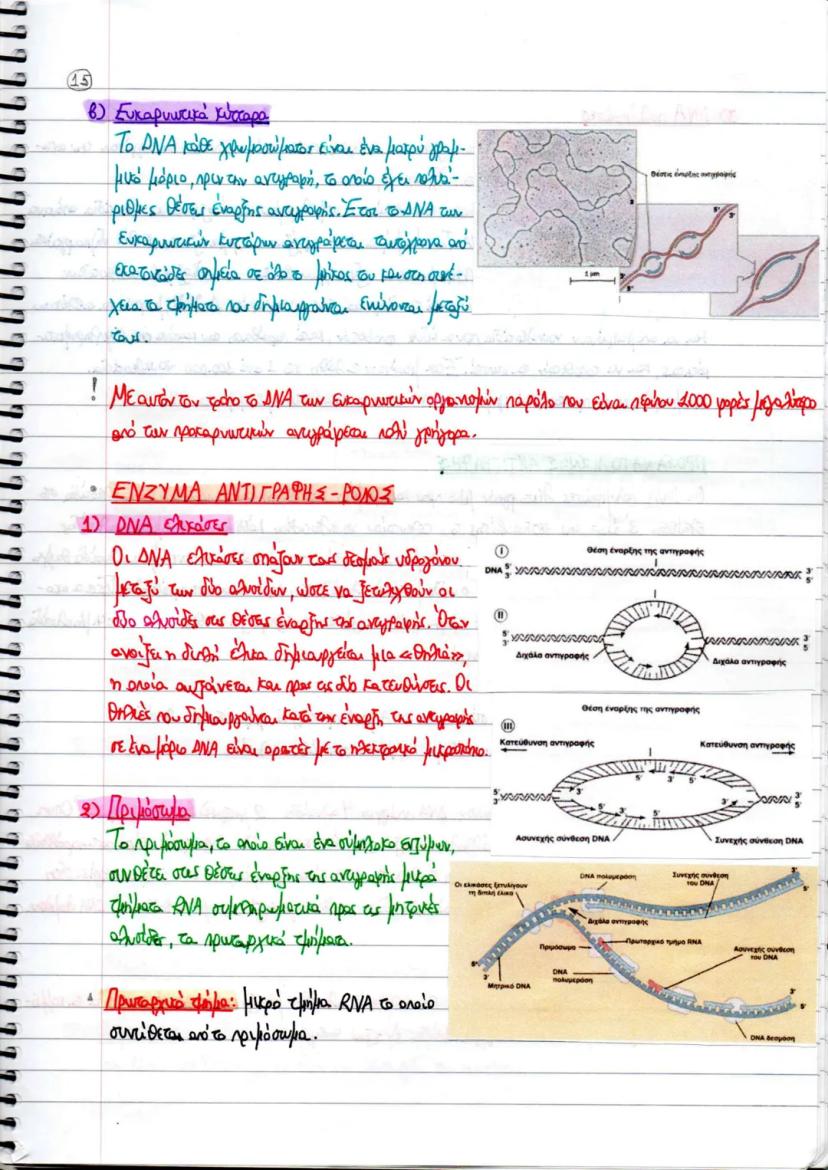 15
β) Ευκαρυωτικά κύτταρα
Το DNA κάθε χρωμοσώματος είναι ένα μακρύ γραμ-
μικό μόριο, πριν την αντιγραφή, το οποίο έχει πολυά-
ριθμες θέσεις έναρξης αντιγραφής. Έτσι το DNA των
ευκαρυωτικών κυττάρων αντιγράφεται ταυτόχρονα από
εκατοντάδες σημεία σε όλο το μήκος του και στη συνέ-
χεια τα τμήματα που δημιουργούνται ενώνονται μεταξύ
τους.
Θέσεις έναρξης αντιγραφής
5'
3'
3'
5'
1 μm
! Με αυτόν τον τρόπο το DNA των ευκαρυωτικών οργανισμών παρόλο που είναι περίπου 1.000 φορές μεγαλύτερο
από των προκαρυωτικών αντιγράφεται πολύ γρήγορα.
• ΕΝΖΥΜΑ ΑΝΤΙΓΡΑΦΗΣ - ΡΟΛΟΣ
1) DNA ελικάσες
Οι DNA ελικάσες σπάζουν τους δεσμούς υδρογόνου
μεταξύ των δύο αλυσίδων, ώστε να ξετυλιχθούν οι
δύο αλυσίδες στις θέσεις έναρξης της αντιγραφής. Όταν
ανοίξει η διπλή έλικα δημιουργείται μια «θηλιά»,
η οποία αυξάνεται και προς τις δύο κατευθύνσεις. Οι
θηλιές που δημιουργούνται κατά την έναρξη της αντιγραφής
σε ένα μόριο DNA είναι ορατές με το ηλεκτρονικό μικροσκόπιο.
I
Θέση έναρξης της αντιγραφής
DNA 5' 3'
3' 5'
II
5' 3'
3' 5'
Διχάλα αντιγραφής Διχάλα αντιγραφής
III
Θέση έναρξης της αντιγραφής
Κατεύθυνση αντιγραφής Κατεύθυνση αντιγραφής
5' 5'
3' 3'
5' 5'
Ασυνεχής σύνθεση DNA Συνεχής σύνθεση DNA
2) Πριμόσωμα
Το πριμόσωμα, το οποίο είναι ένα σύμπλοκο ενζύμων,
συνθέτει στις θέσεις έναρξης της αντιγραφής μικρά
τμήματα RNA συμπληρωματικά προς τις μητρικές
αλυσίδες, τα πρωταρχικά τμήματα.
• Πρωταρχικό τμήμα: μικρό τμήμα RNA το οποίο
συντίθεται από το πριμόσωμα.
DNA πολυμεράση
Συνεχής σύνθεση
του DNA
3'
5'
Οι ελικάσες ξετυλίγουν
τη διπλή έλικα
Διχάλα αντιγραφής
Πρωταρχικό τμήμα RNA
Πριμόσωμα
Ασυνεχής σύνθεση
του DNA
5'
3'
Μητρικό DNA
DNA
πολυμεράση
3'
5'
DNA δεσμάση